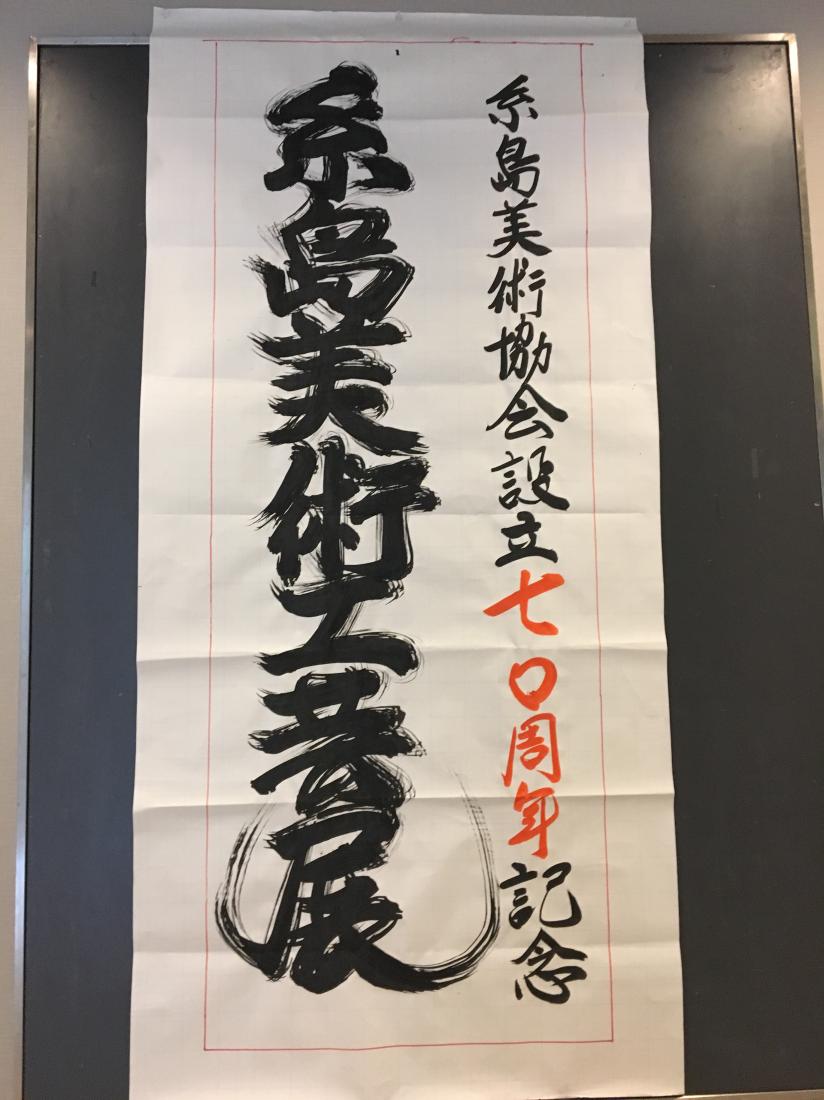 糸島美術協会設立七〇周年記念
糸島美術工芸展